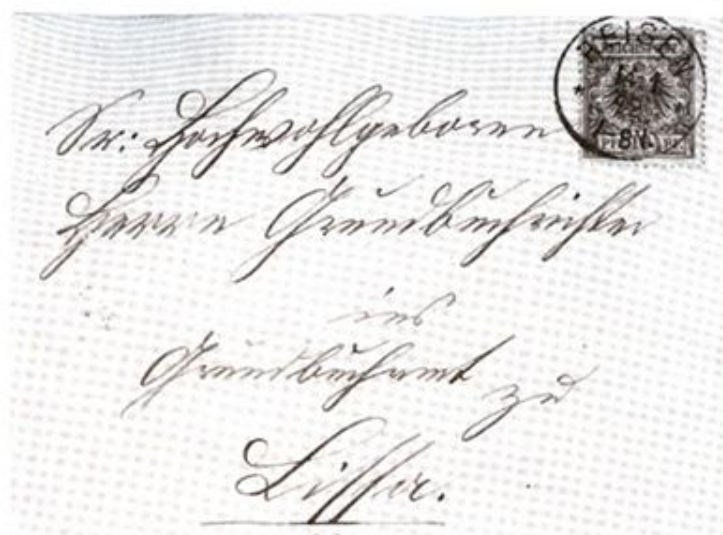 REISEN
8V.
Sr: Hochwohlgeboren
Herrn Grundbuchrichter
ins
Grundbuchamt
zu
Lissa.